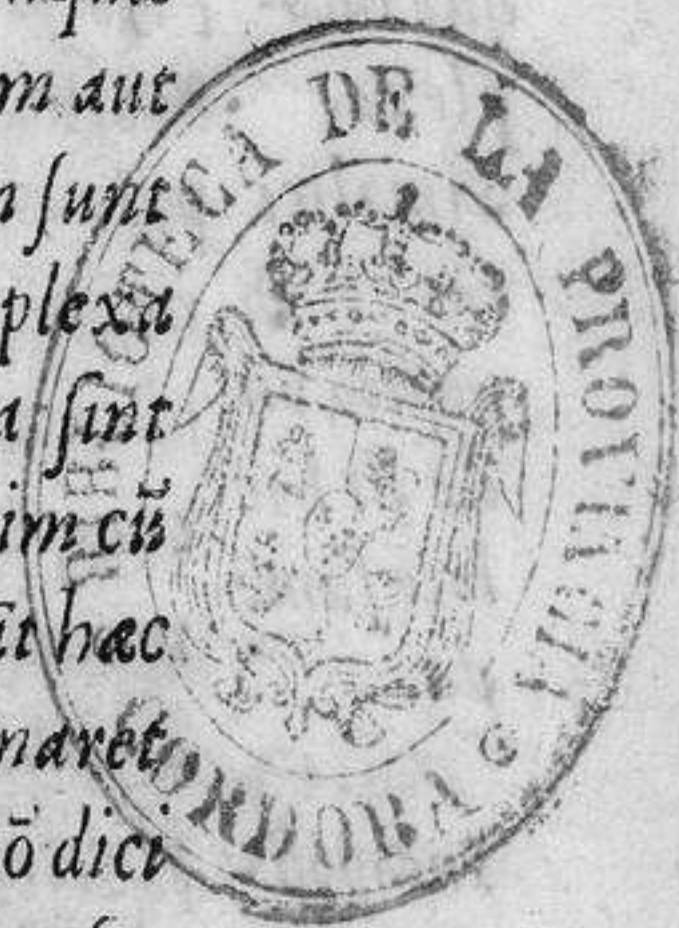 m aut
n ſunt
plexa
a ſint
im cū
īt hæc
naret
ō dici
BIBLIOTECA DE LA PROVINCIA
CORDOBA